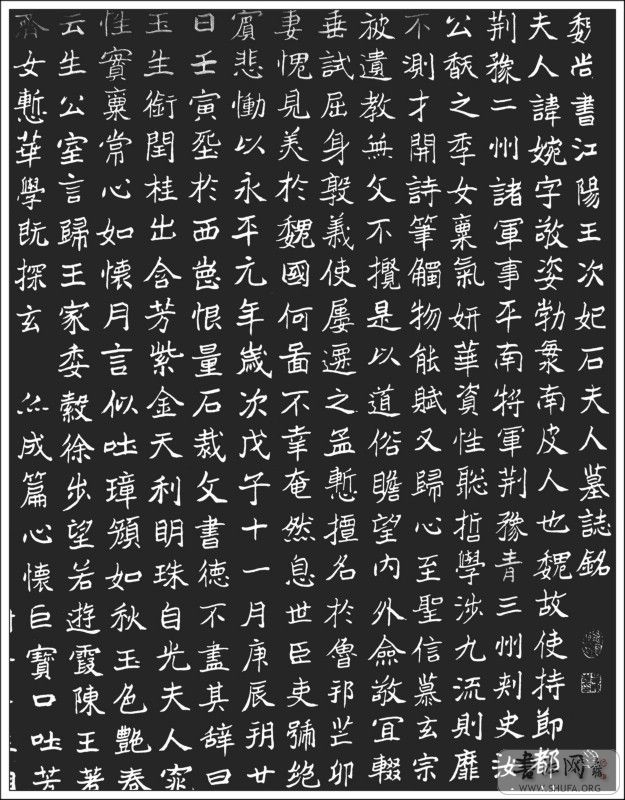 魏尚書江陽王次妃石夫人墓誌銘
夫人諱婉字敬姿勃海南皮人也魏故使持節都
荆豫二州諸軍事平南將軍荆豫青三州刺史汝
公馥之季女稟氣妍華資性聡哲學涉九流則靡
不測才開詩筆觸物能賦又歸心至聖信慕玄宗
被遺教無文不攬是以道俗瞻望内外僉敬宜輟
垂試屈身敦義使屢遷之孟慙擅名於魯邦芒卯
妻愧見美於魏國何啚不幸奄然息世臣吏號絶
賓悲慟以永平元年歲次戊子十一月庚辰朔廿
日壬寅塟於西崗恨量石裁文書德不盡其辭曰
玉生衘閏桂出含芳紫金天利明珠自光夫人窕
性寳稟常心如懷月言似吐璋頽如秋玉色艷春
云生公室言歸王家委縠徐步望若遊霞陳王著
齊女慙華學既探玄 亦成篇心懷巨寳口吐芳
WWW.SHUFA.ORG